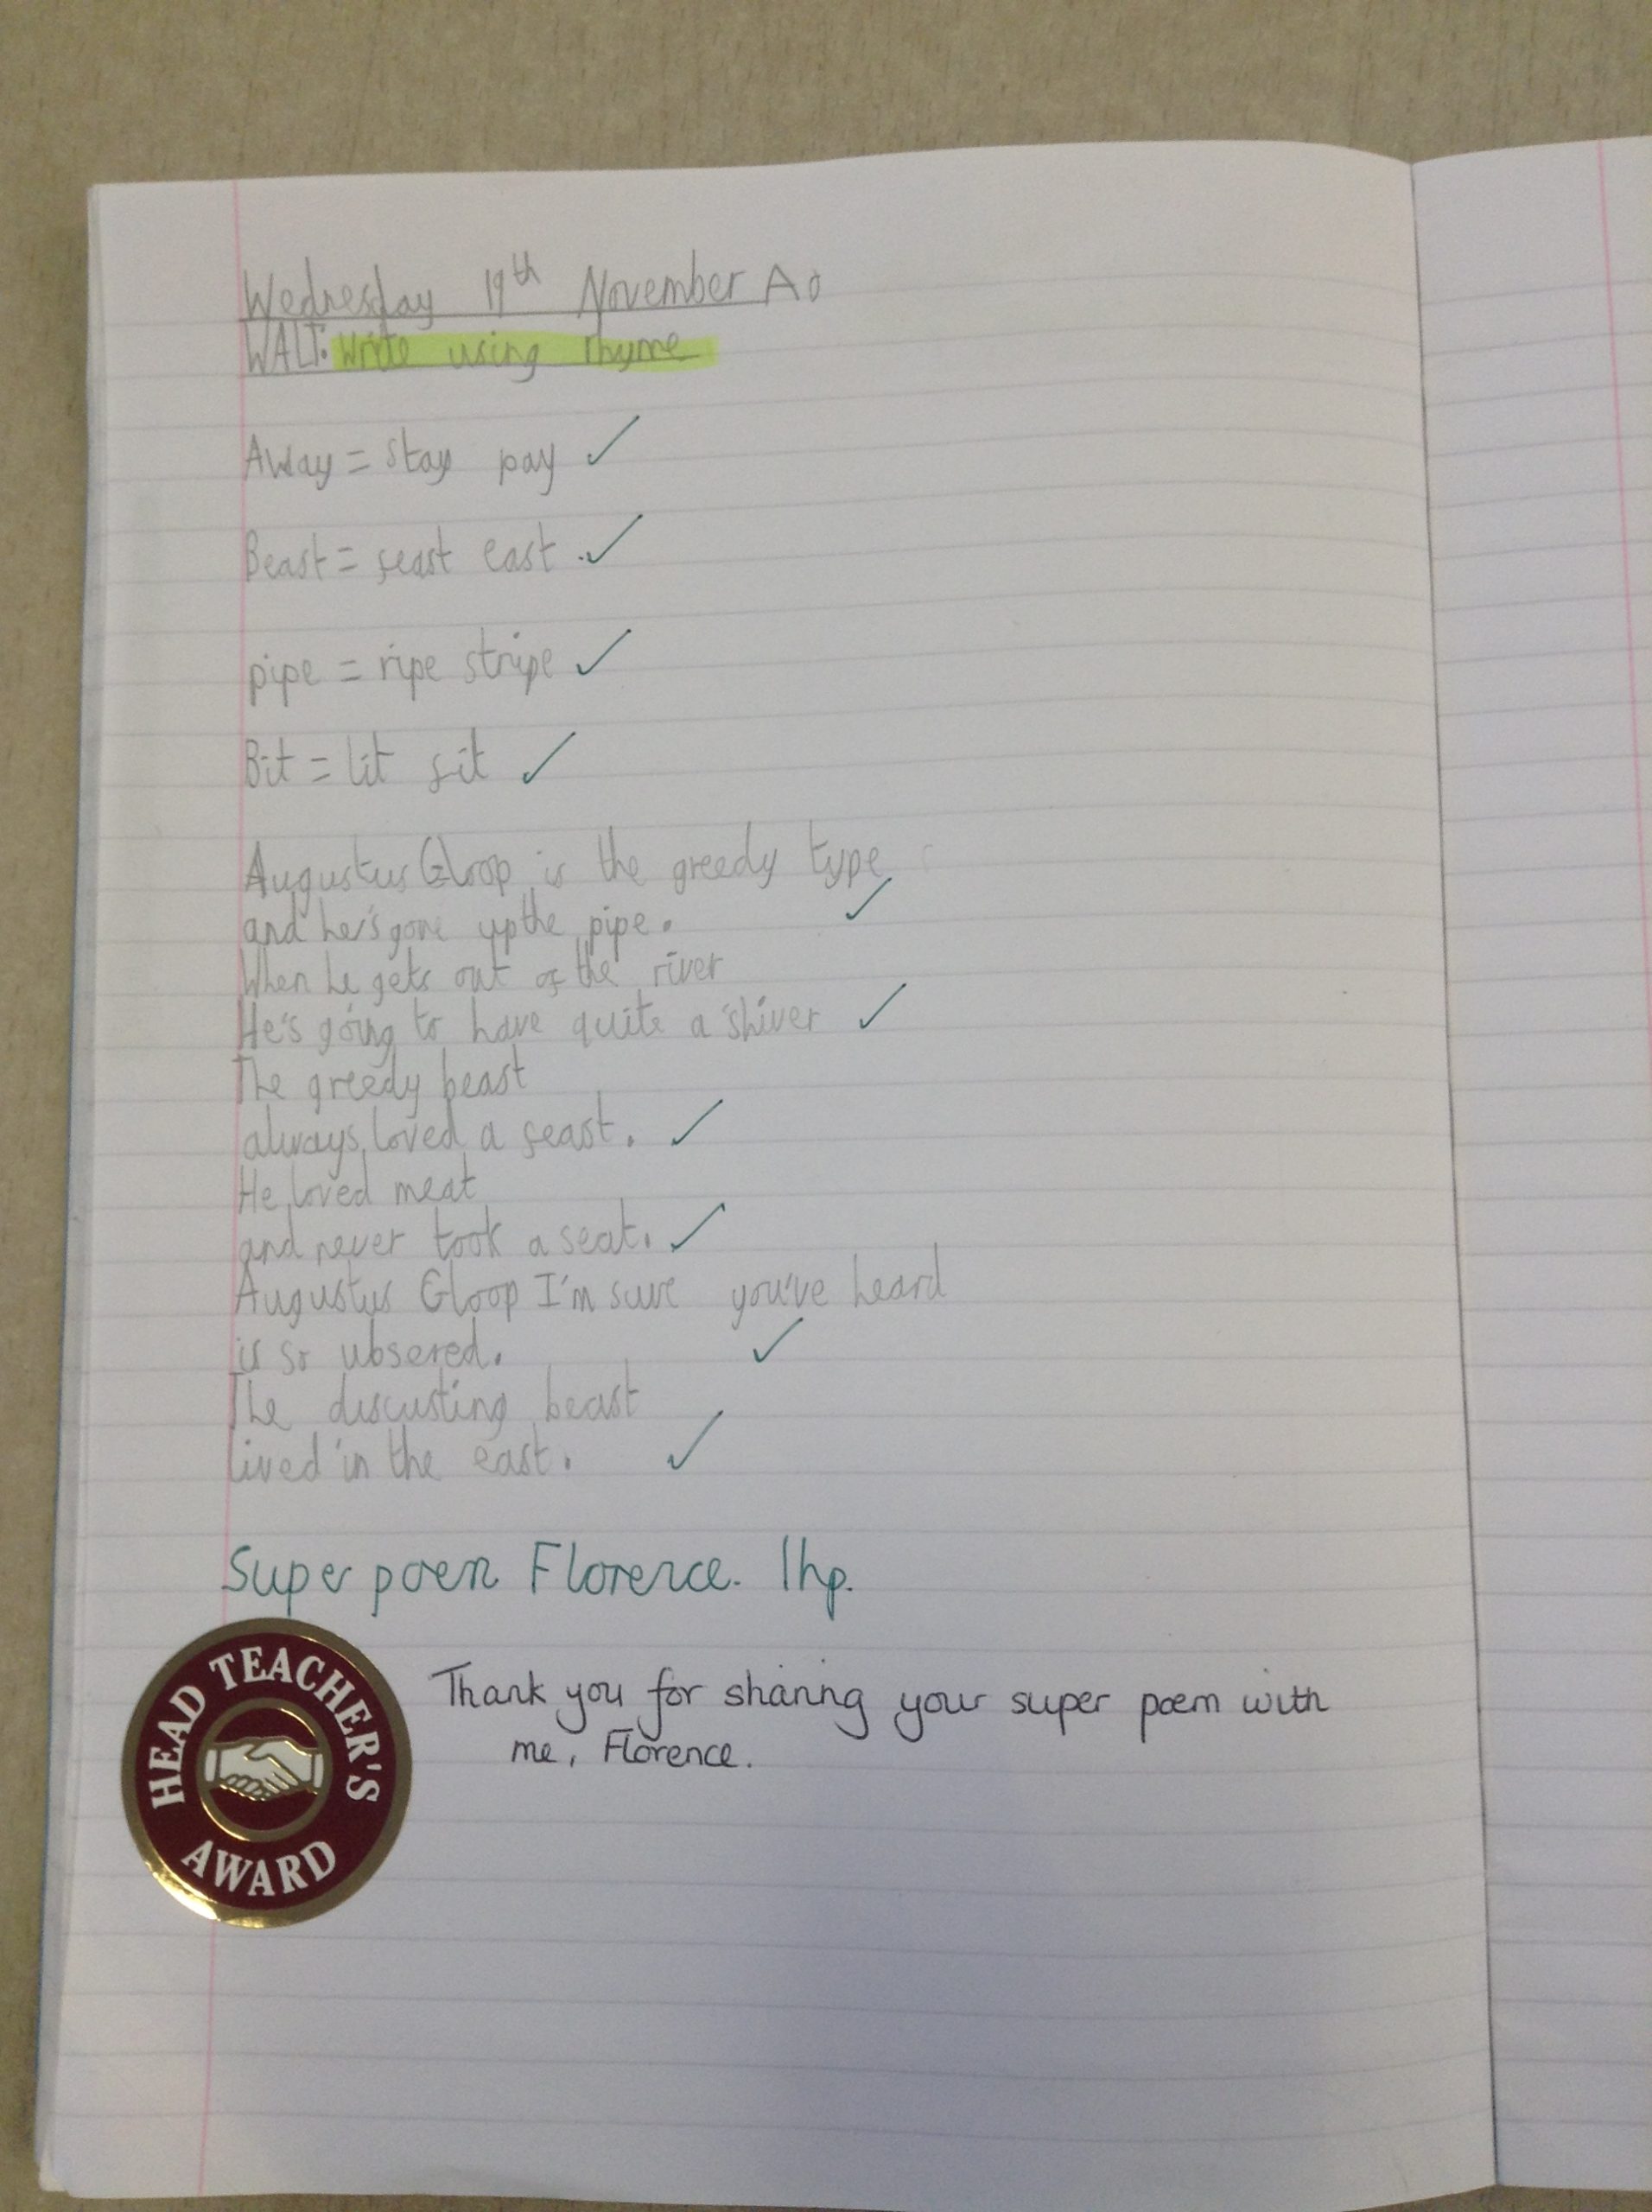 Wednesday 19th November Ao
WALT: Write using rhyme
Away = stay pay
Beast = feast east
pipe = ripe stripe
Bit = lit fit
Augustus Gloop is the greedy type
and he's gone up the pipe.
When he gets out of the river
He's going to have quite a shiver
The greedy beast
always loved a feast.
He loved meat
and never took a seat.
Augustus Gloop I'm sure you've heard
is so ubsered.
The discusting beast
lived in the east.
Super poem Florence. 1hp.
HEAD TEACHER'S
AWARD
Thank you for sharing your super poem with
me, Florence.